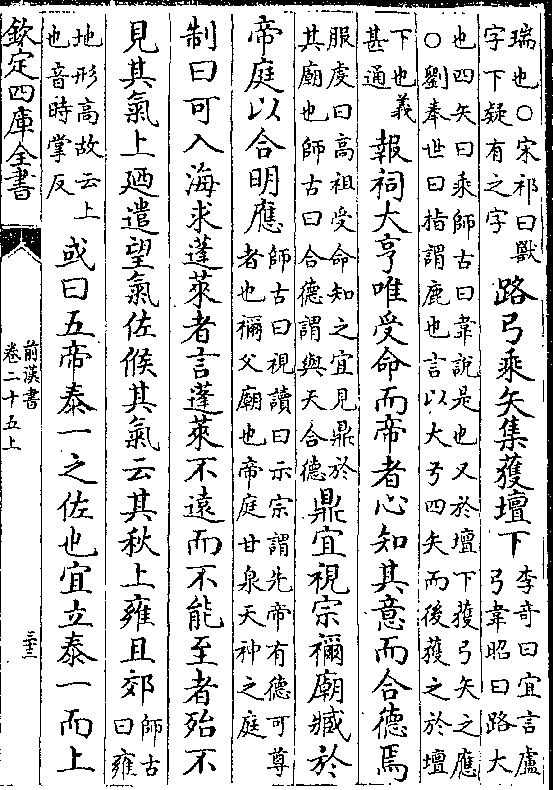 瑞也○宋祁曰獸
字下疑有之字
路弓乘矢集獲壇下
李奇曰宜言盧
弓韋昭曰路大
也四矢曰乘師古曰韋說是也又於壇下獲弓矢之應
○劉奉世曰指謂鹿也言以大弓四矢而後獲之於壇
下也義
甚通
報祠大亨唯受命而帝者心知其意而合德焉
服虔曰高祖受命知之宜見鼎於
其廟也師古曰合德謂與天合德
鼎宜視宗禰廟臧於
帝庭以合明應
師古曰視讀曰示宗謂先帝有德可尊
者也禰父廟也帝庭甘泉天神之庭
制曰可入海求蓬萊者言蓬萊不遠而不能至者殆不
見其氣上廼遣望氣佐候其氣云其秋上雍且郊
師古
曰雍
地形高故云上
也音時掌反
或曰五帝泰一之佐也宜立泰一而上
欽定四庫全書
前漢書
卷二十五上
三十三